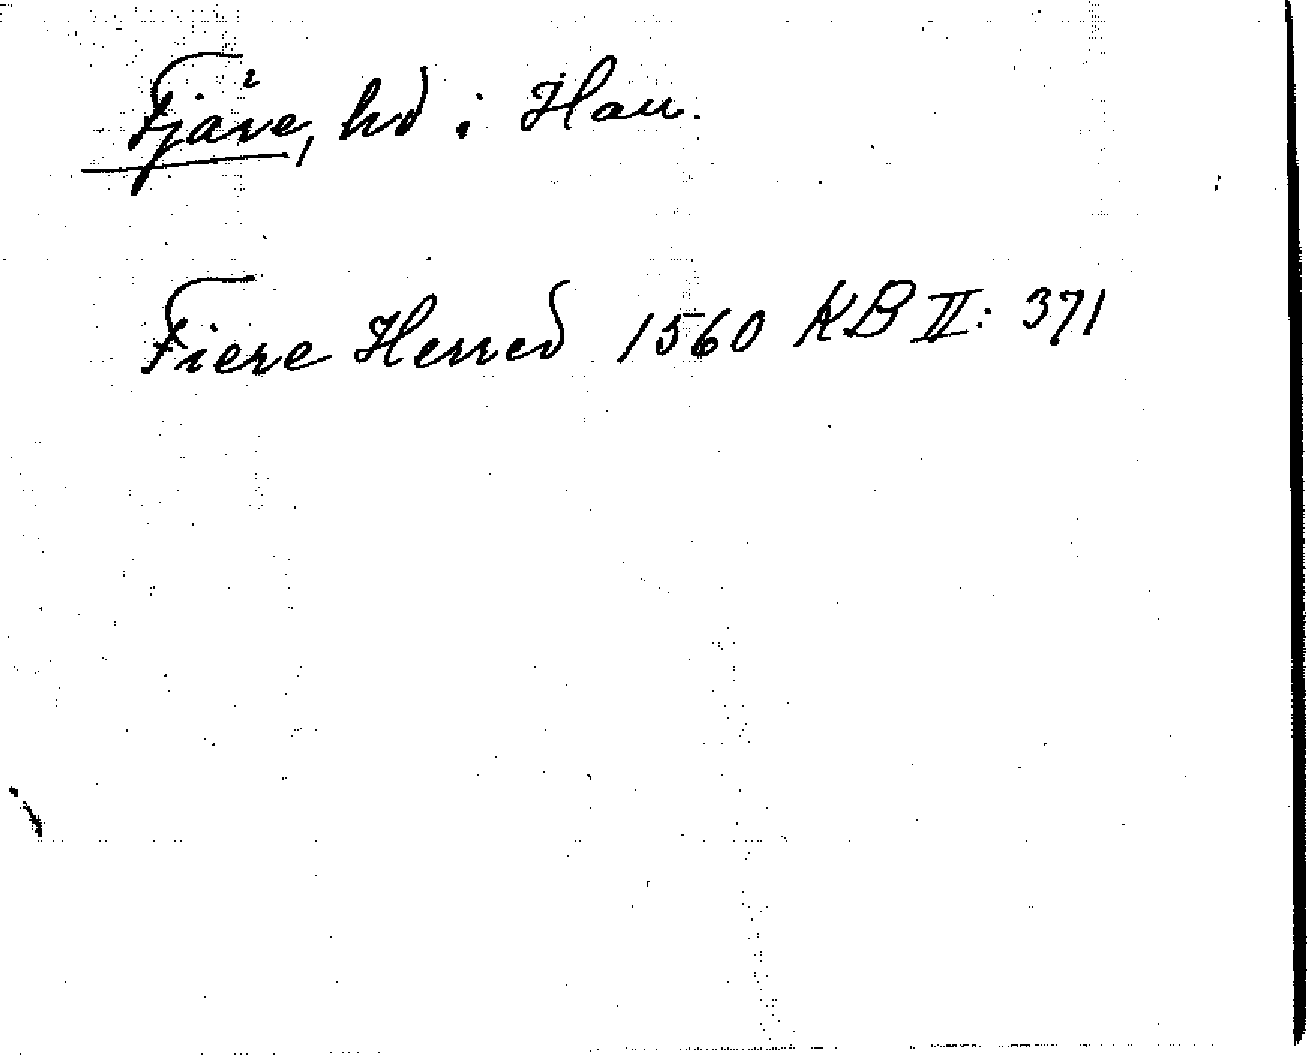 Fjäre, hd i Hall.
Fiere Herred 1560 KB II: 371